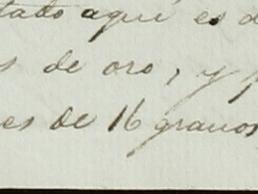 tado aqui es d
s de oro, y p
es de 16 granos